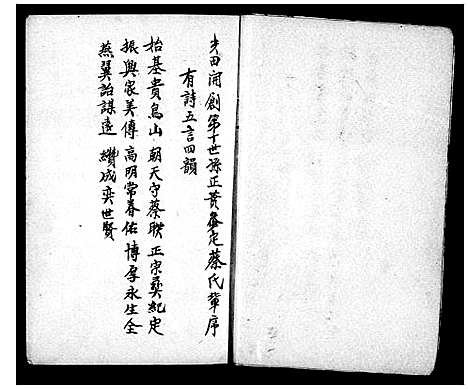 夹田開創第十世孫正黄參定蔡氏輩序
有詩五言四韻
抬基貴烏山 朝天守蔡 正宗 紀定
振興家美傳 高明常春佑 博厚永生全
燕翼詒謀遠 纘成奕世賢